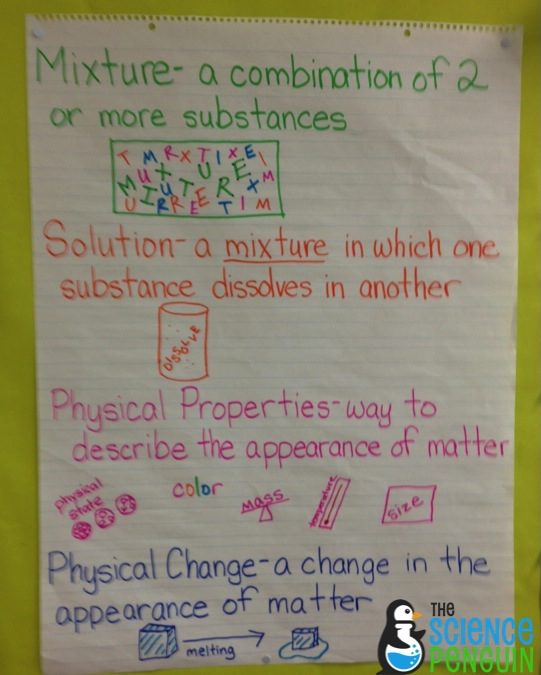 Mixture- a combination of 2
or more substances
T M R X T I X E I
M U X T U R E X M
M I U T E R X
U I R R E E T I M
Solution- a mixture in which one
substance dissolves in another
Dissolve
Physical Properties-way to
describe the appearance of matter
physical
state
color
mass
temperature
size
Physical Change-a change in the
appearance of matter
melting
THE
SCIENCE
PENGUIN